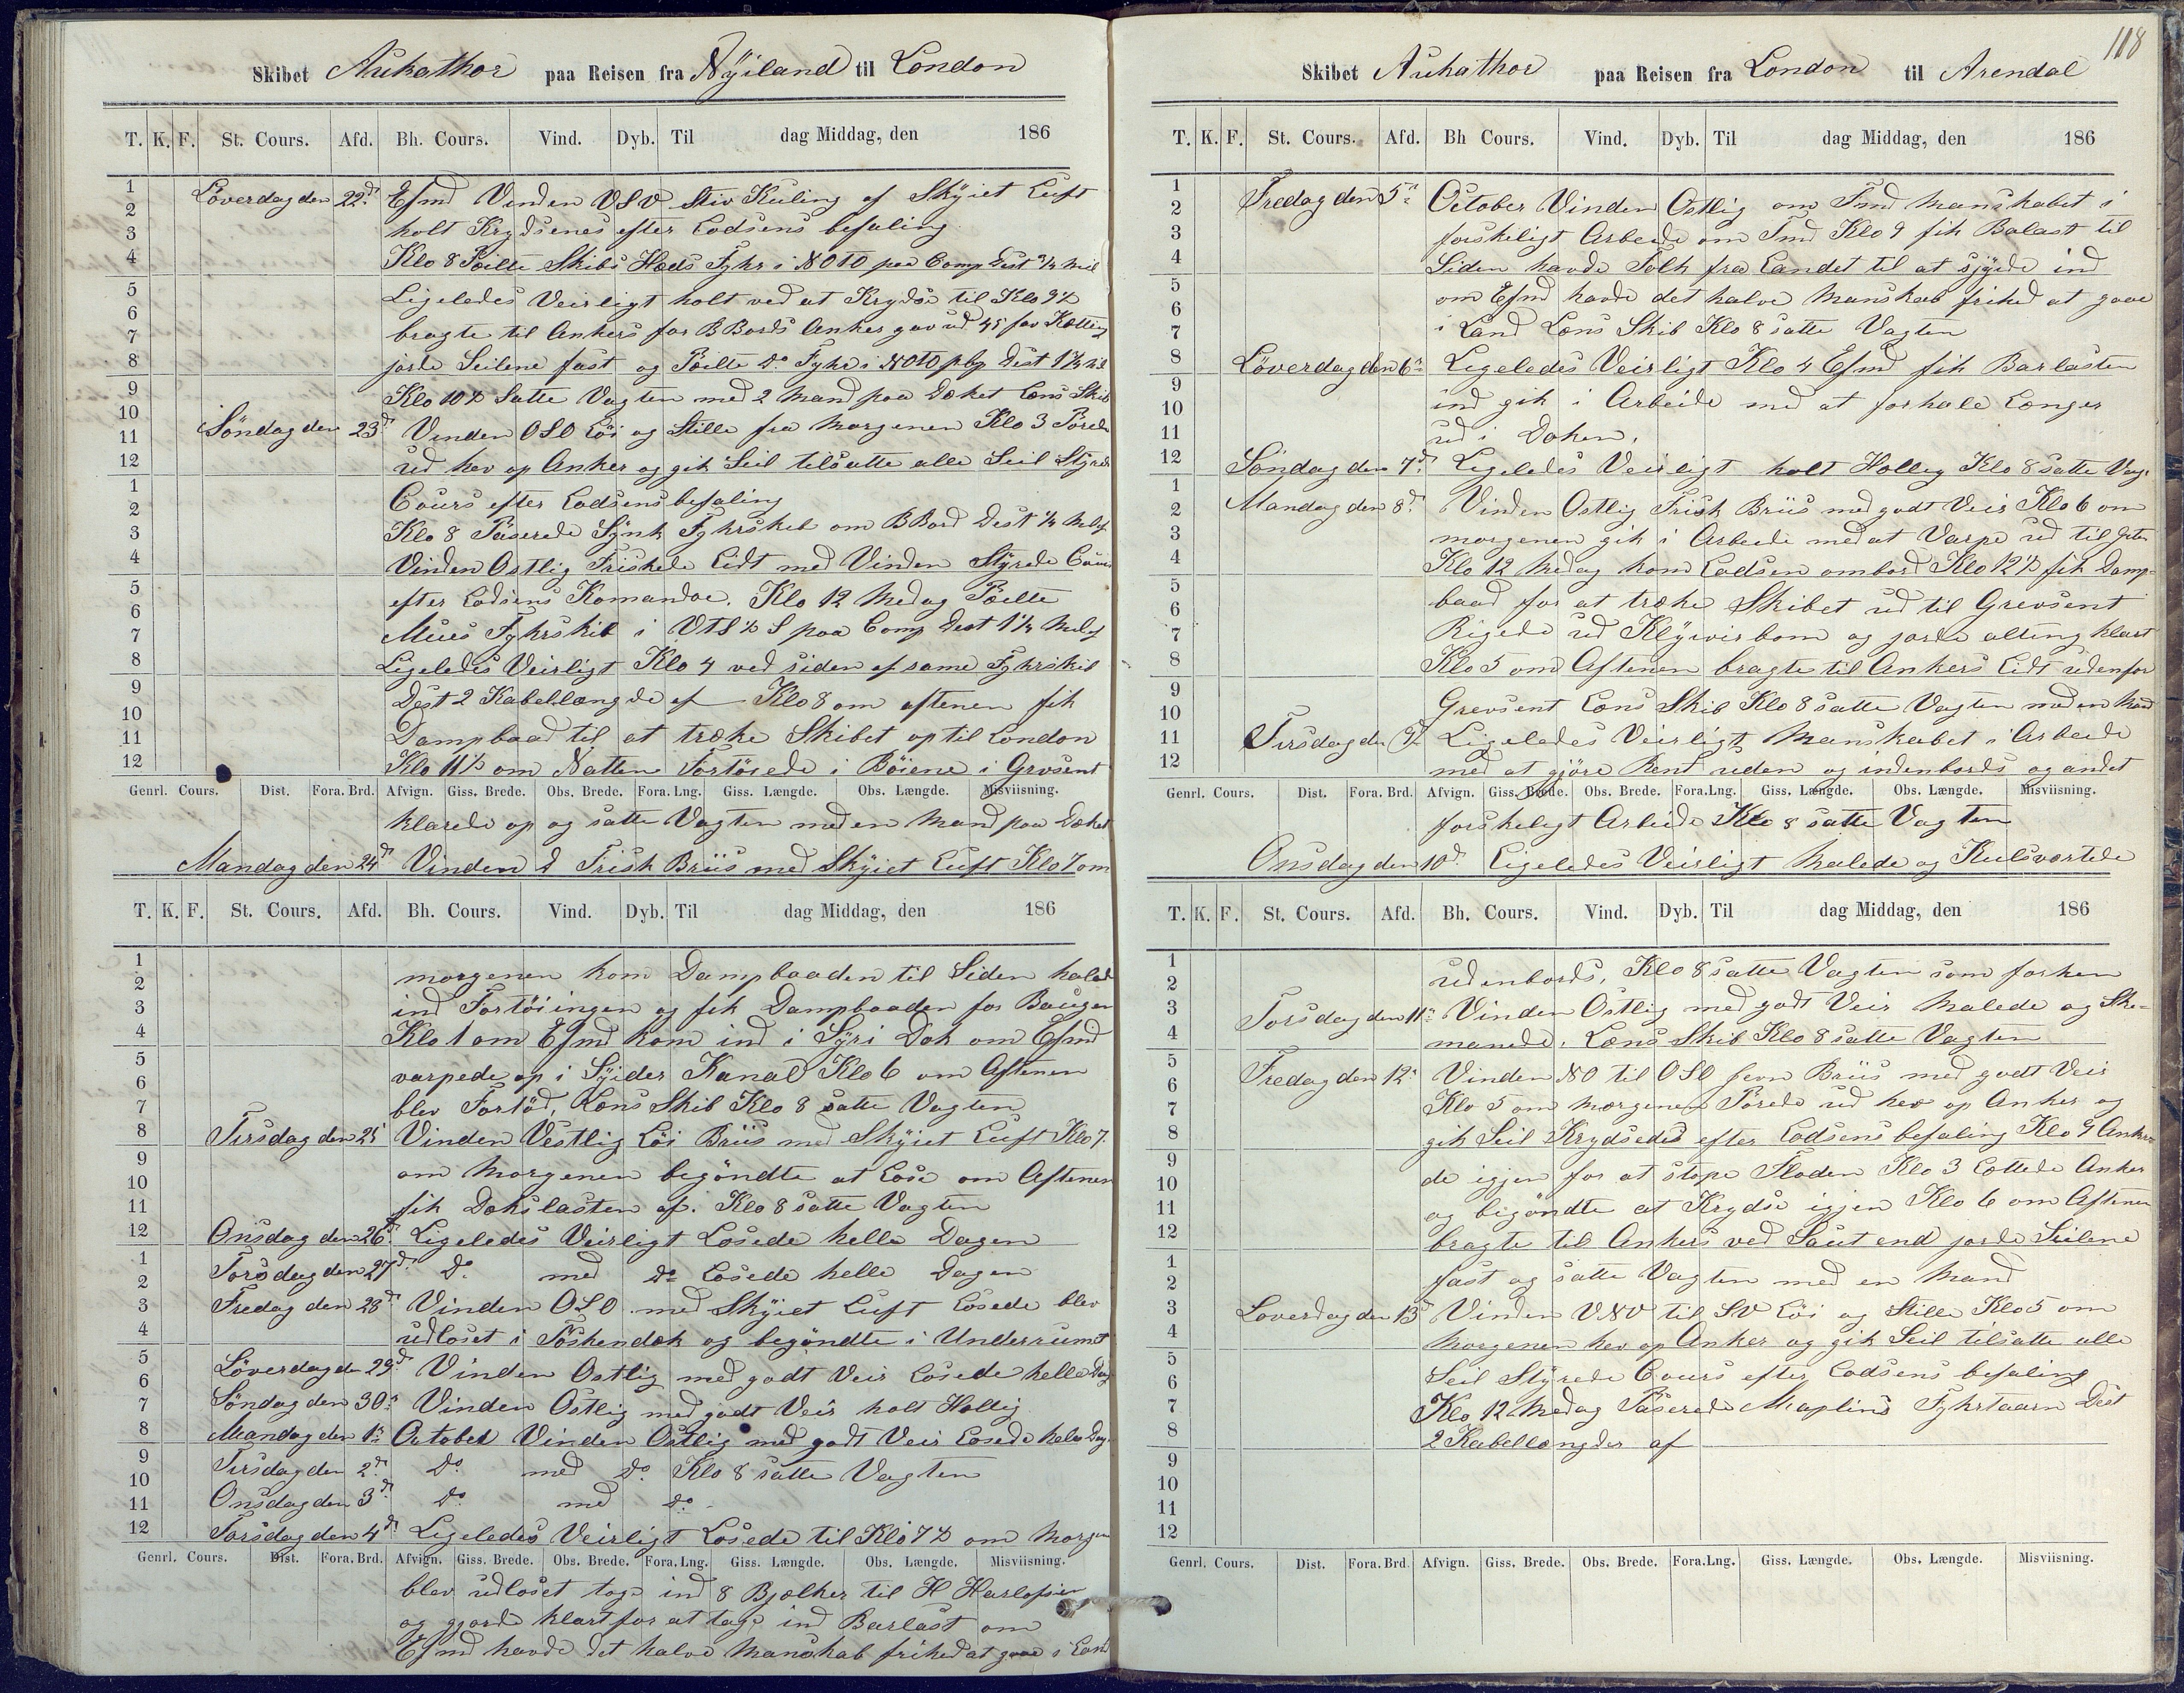 Skibet Aukathor paa Reisen fra Nÿiland til London
T. K. F. St. Cours. Afd. Bh. Cours. Vind. Dyb. Til dag Middag, den 186
Löverdag den 22d Efmd Vinden VSV Stiv Kuling af Skÿiet Luft
holt Krydsenes efter Lodsens befaling
Klo 8 Peilte Skibs Hæds Fyhr i NOTO paa Comp Dest ¾ Mil
Ligeledes Veirligt holt ved at Krydse til Klo 9½
bragte til Ankers for B Bords Anker gav ud 45 fav Kætting
jorde Seilene fast og Peilte Do Fyhr i NOTO pbp Dest 1¼ Mil
Klo 10½ Satte Vagten med 2 Mand paa Dæket Læns Skib
Söndag den 23d Vinden OSO Löi og Stille fra Morgenen Klo 3 Pörede
ud hev op Anker og gik Seil tilsatte alle Seil Stÿrede
Cours efter Lodsens befaling
Klo 8 Paserede Synk Fyhrskib om BBord Dest ¼ Mil af
Vinden Ostlig Friskede Lidt med Vinden Stÿrede Cours
efter Lodsens Komandoe. Klo 12 Medag Peilte
Mues Fyhrskib i VTS½S paa Comp Dest 1¼ Mil af
Ligeledes Veirligt Klo 4 ved siden af same Fyhrskib
Dest 2 Kabellængde af Klo 8 om aftenen fik
Dampbaad til at træke Skibet op til London
Klo 11½ om Natten Fortöiede i Böiene i Grvsent
Genrl. Cours. Dist. Fora. Brd. Afvign. Giss. Brede. Obs. Brede. Fora. Lng. Giss. Længde. Obs. Længde. Misviisning.
klarede op og satte Vagten med en Mand paa Dæket
Mandag den 24d Vinden O Frisk Briis med Skÿiet Luft Klo 7 om
T. K. F. St. Cours. Afd. Bh. Cours. Vind. Dyb. Til dag Middag, den 186
morgenen kom Dampbaaden til Siden halede
ind Fortöiingen og fik Dampbaaden for Baugen
Klo 1 om Efmd kom ind i Syri Dok om Efmd
varpede op i Sÿider Kanal Klo 6 om Aftenen
blev Fortöid, Læns Skib Klo 8 satte Vagten
Tirsdag den 25 Vinden Vestlig Löi Briis med Skÿiet Luft Klo 7
om Morgenen begöndte at Lose om Aftenen
fik Dækslasten af. Klo 8 satte Vagten
Onsdag den 26d Ligeledes Veirligt Losede helle Dagen
Torsdag den 27d Do med Do Losede helle Dagen
Fredag den 28d Vinden OSO med Skÿiet Luft Losede blev
udloset i Töskendæk og begöndte i Underrumet
Löverdag den 29d Vinden Ostlig med godt Veir Losede helle Dag
Söndag den 30d Vinden Ostlig med godt Veir holt Hellig
Mandag den 1ste October Vinden Ostlig med godt Veir Losede hele Dag
Tirsdag den 2d Do med Do Klo 8 satte Vagten
Onsdag den 3d Do med Do
Torsdag den 4d Ligeledes Veirligt Losede til Klo 7½ om Morgen
Genrl. Cours. Dist. Fora. Brd. Afvign. Giss. Brede. Obs. Brede. Fora. Lng. Giss. Længde. Obs. Længde. Misviisning.
blev udloset tog ind 8 Bjælker til H
og gjorde klart for at tage ind Barlast om
Efmd havde det halve Manskab frihed at gaae i Land
118
Skibet Aukathor paa Reisen fra London til Arendal
T. K. F. St. Cours. Afd. Bh Cours. Vind. Dyb. Til dag Middag, den 186
Fredag den 5te October Vinden Ostlig om Fmd Manskabet i
forskeligt Arbeide om Fmd Klo 9 fik Balast til
Siden havde Folk fra Landet til at sjÿde ind
om Efmd havde det halve Manskab frihed at gaae
i Land Læns Skib Klo 8 satte Vagten
Löverdag den 6te Ligeledes Veirligt Klo 4 Efmd fik Barlasten
ind gik i Arbeide med at forhale Længer
ud i Doken.
Söndag den 7d Ligeledes Veirligt holt Hellig Klo 8 satte Vag.
Mandag den 8d Vinden Ostlig Frisk Briis med godt Veir Klo 6 om
morgenen gik i Arbeide med at Varpe ud til
Klo 12 Medag kom Lodsen ombord Klo 12½ fik Damp-
baad for at træke Skibet ud til Grevsent
Rigede ud Klÿwirbom og jorde alting klart
Klo 5 om Aftenen bragte til Ankers Lidt udenfor
Grevsent Læns Skib Klo 8 satte Vagten med en Mand
Tirsdag den 9 Ligeledes Veirligt Manskabet i Arbeide
med at gjöre Rent uden og indenbords og andet
Genrl. Cours. Dist. Fora. Brd. Afvign. Giss. Brede. Obs. Brede. Fora. Lng. Giss. Længde. Obs. Længde. Misviisning.
forskeligt Arbeide Klo 8 satte Vagten
Onsdag den 10d Ligeledes Veirligt Malede og Kulsvertede
T. K. F. St. Cours. Afd. Bh. Cours. Vind. Dyb. Til dag Middag, den 186
udenbords. Klo 8 satte Vagten som forhen
Torsdag den 11te Vinden Ostlig med godt Veir Malede og Ske-
manede. Læns Skib Klo 8 satte Vagten
Fredag den 12te Vinden NO til OSO jevn Briis med godt Veir
Klo 5 om Morgenen Pörede ud hev op Anker og
gik Seil Krydsedes efter Lodsens befaling Klo 9 Ankre-
de igjen for at stope Floden Klo 3 Lettede Anker
og begöndte at Krydse igjen Klo 6 om Aftenen
bragte til Ankers ved Saut end jorde Seilene
fast og satte Vagten med en Mand
Loverdag den 13 Vinden VNV til SV Löi og Stille Klo 5 om
Morgenen hev op Anker og gik Seil tilsatte alle
Seil Stÿrede Cours efter Lodsens befaling
Klo 12 Medag Paserede Maplins Fyhrtaarn Dest
2 Kabellængder af
Genrl. Cours. Dist. Fora. Brd. Afvign. Giss. Brede. Obs. Brede. Fora. Lng. Giss. Længde. Obs. Længde. Misviisning.